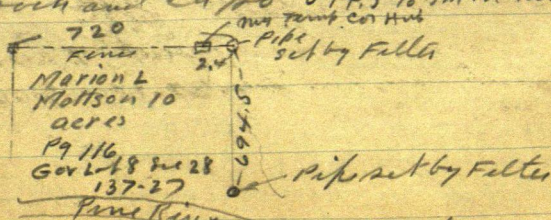 720
Temp. Cor Hub
Pipe
set by Felter
Fence
2.4
Marion L
Mottson 10
acres
Pg 116
Gov Lot 8 Sec 28
137-27
694.5
Pipe set by Felter
Pine River